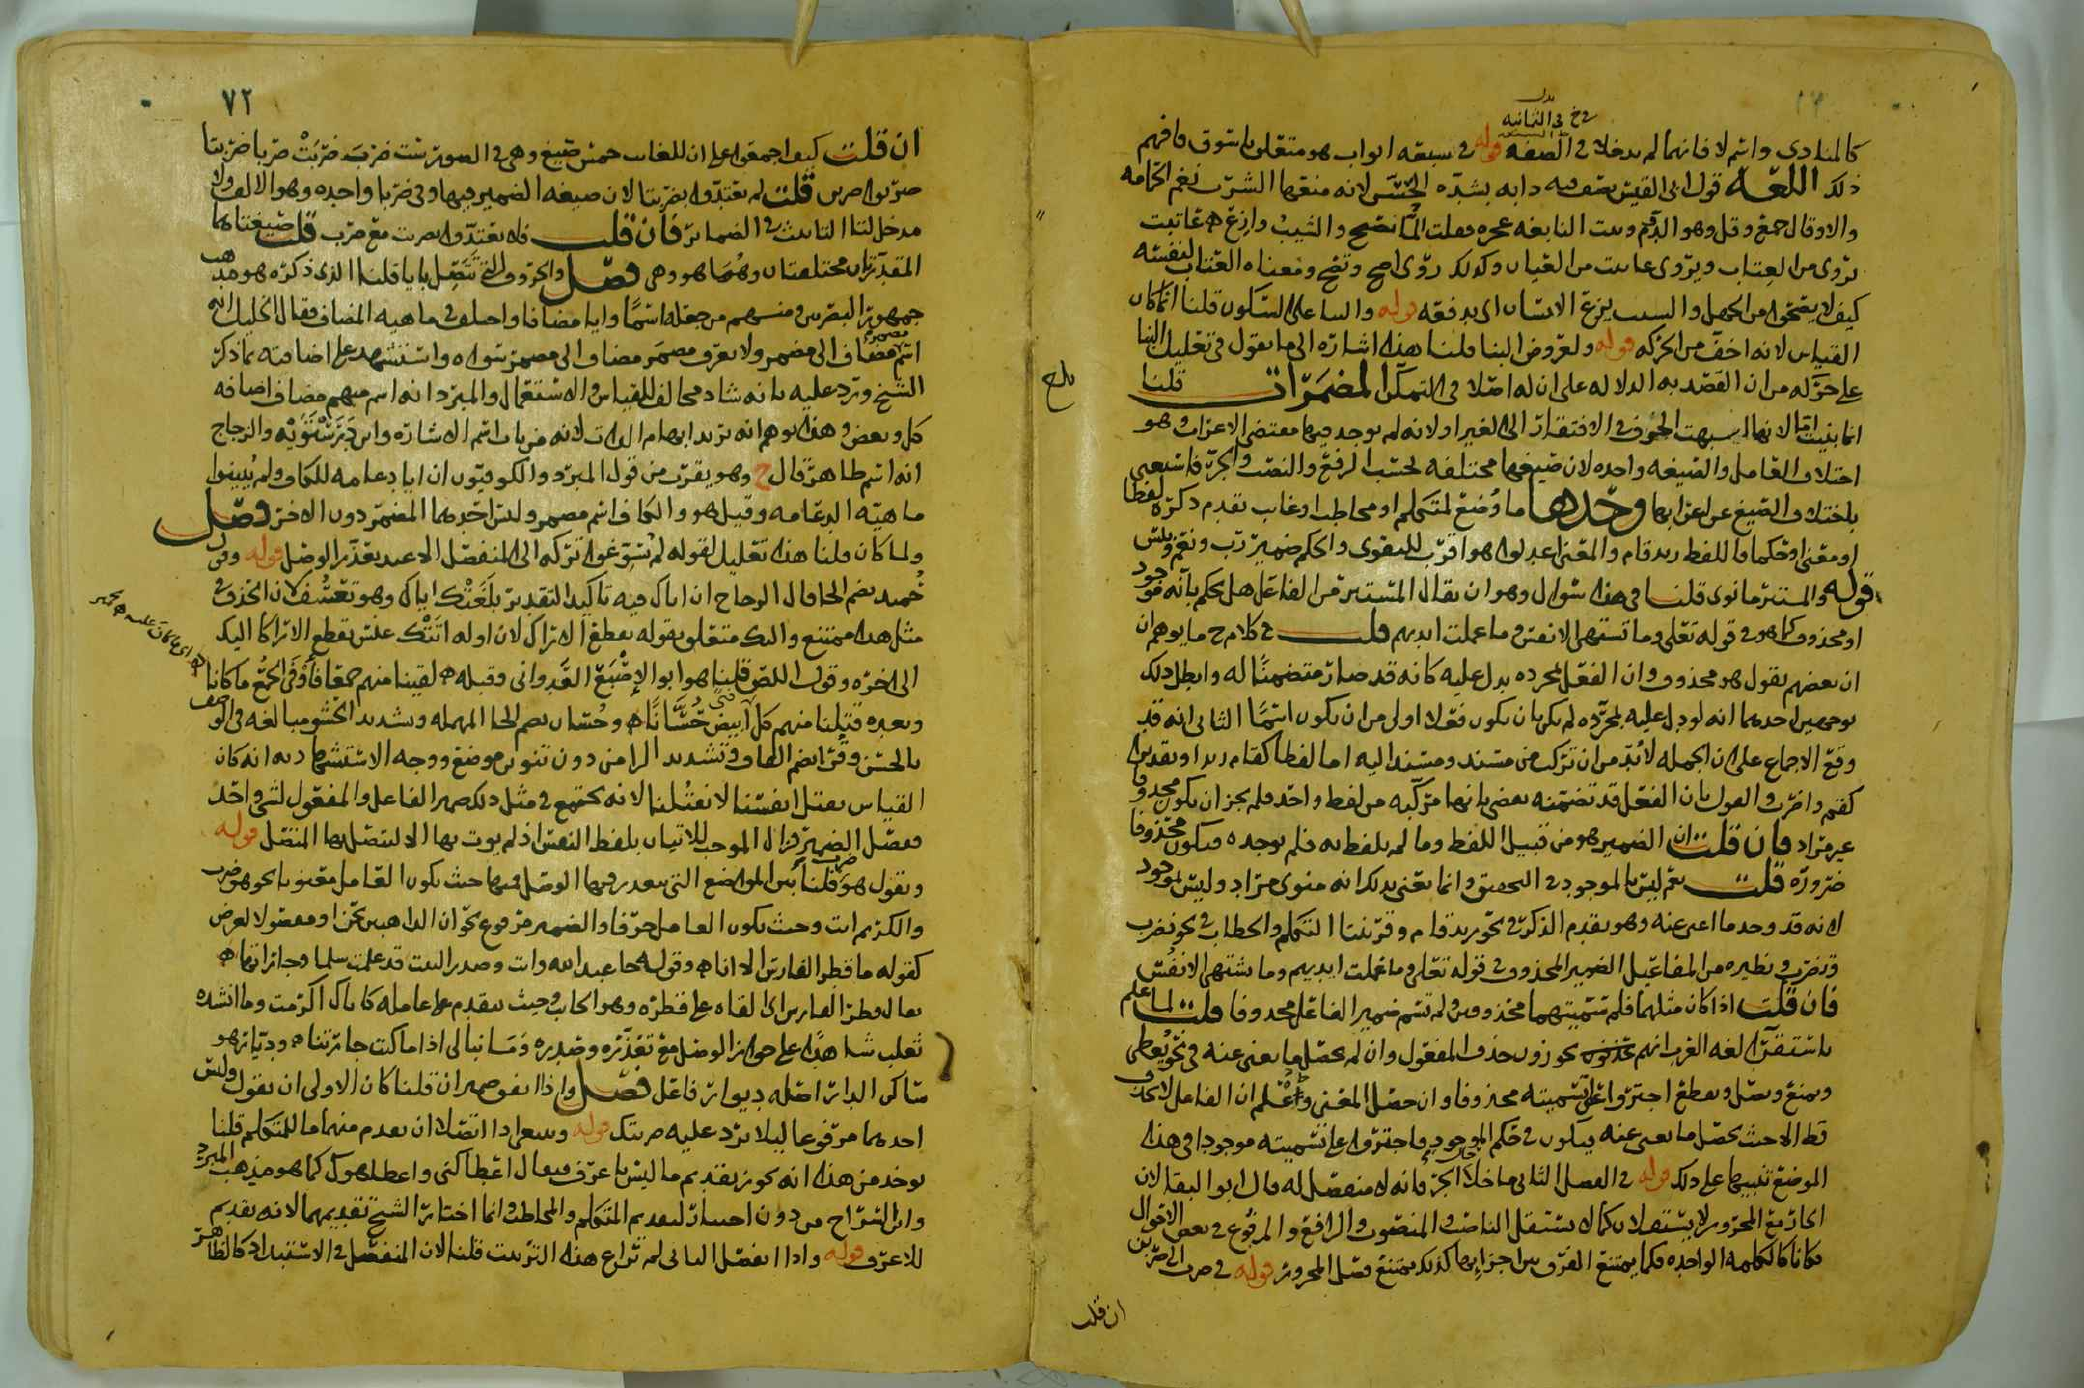 في الثانيه
كالمنادى واسم لا فانهما لم يدخلا في الصفه قوله في سبعه ابواب هو متعلق فافهم
ذلك اللغه قول امرئ القيس يصف دابه بشده لانه منعها الشرب نغم الحمامه
والاوقال جمع وقل وهو الدوم وبيت النابغه عجزه فقلت الما تصح والشيب وازع عاتبت
يروى من العتاب ويروى عاينت من العيان وكذلك روي اصح وتصح ومعناه العتاب لنفسه
كيف لا يصحو من الجهل والشيب يزع الانسان اي يدفعه قوله والبنا على السكون قلنا انما كان
القياس لانه اخف من الحركه قوله ولعروض البنا قلنا هذه اشاره الى ما يقول في تعليل البنا
على حركه من ان القصد به الدلاله على ان له اصلا في التمكن المضمرات قلنا
انما بنيت لانها اشبهت الحروف في الافتقار الى الغير او لانه لم يوجد فيها مقتضى الاعراب وهو
اختلاف العامل والصيغه واحده لان صيغها مختلفه بحسب الرفع والنصب والجر فاستغني
باختلاف الصيغ عن اعرابها وحدها ما وضع لمتكلم او مخاطب او غايب تقدم ذكره لفظا
او معنى او حكما فاللفظ زيد قام والمعنى اعدلوا هو اقرب للتقوى والحكم ضمير رب ونعم وبئس
قوله والمستتر ما نوى قلنا في هذا سوال وهو ان يقال المستتر من الفاعل هل يحكم بانه موجود
او محذوف كما هو في قوله تعالى وما تشتهي الانفس وما عملت ايديهم قلت في كلام ح ما يوهم ان
ان بعضهم يقول هو محذوف وان الفعل بمجرده يدل عليه كانه قد صار متضمنا له وابطل ذلك
بوجهين احدهما انه لو دل عليه بمجرده لم يكن بان يكون فعلا اولى من ان يكون اسما الثاني انه قد
وقع الاجماع على ان الجمله لابد من ان تركب من مسند ومسند اليه اما لفظا كقام زيد او تقديرا
كقم واضرب والقول بان الفعل قد تضمنه يقضي بانها مركبه من لفظ واحد فلم يجز ان يكون محذوفا
غير مراد فان قلت ان الضمير هو من قبيل اللفظ وما لم يلفظ به فلم يوجد فيكون محذوفا
ضروره قلت نعم ليس بالموجود في التحقيق وانما يعنى بذلك انه منوي مراد وليس بموجود
لانه قد وجد ما اغنى عنه وهو تقدم الذكر في نحو زيد قام وقرينتا التكلم والخطاب في نحو نضرب
وتضرب ونظيره من المفاعيل الضمير المحذوف في قوله تعالى وما عملت ايديهم وما تشتهي الانفس
فان قلت اذا كان مثلهما فلم سميتهما محذوفين ولم تسم ضمير الفاعل محذوفا قلت لما علم
باستقرا لغه العرب انهم يجوزون حذف المفعول وان لم يحصل ما يغني عنه في نحو يعطي
ويمنع ويصل ويقطع اجترؤا على تسميته محذوفا وان حصل المغني ولما علم ان الفاعل لا يحذف
قط الا حيث يحصل ما يغني عنه فيكون في حكم الموجود اجترؤا على تسميته موجودا في هذا
الموضع تنبيها على ذلك قوله في الفصل الثاني ما خلا الجر فانه لا منفصل له قال ابو البقا لان
الجار مع المجرور لا يستقلان كما لا يستقل الناصب والمنصوب والرافع والمرفوع في بعض الاقوال
فكانا كالكلمه الواحده فكما يمتنع الفرق بين اجزايها كذلك يمتنع فصل المجرور قوله في ضرب الى ضربن
ان قلت
بلغ
٧٢
ان قلت كيف اجمعوا على ان للغايب خمس صيغ وهي في الصوره ست ضرب ضربت ضربا ضربتا
ضربوا ضربن قلت لم يعتدوا بضربتا لان صيغه الضمير فيها وفي ضربا واحده وهو الالف ولا
مدخل لتا التانيث في الضمائر فان قلت فلم يعتدوا بضربت مع ضرب قلت صيغتاهما
المقدرتان مختلفتان وهما هو وهي فصل والحروف التي تتصل بايا قلنا الذي ذكره هو مذهب
جمهور البصريين ومنهم من جعله اسما وايا مضافا واختلف في ماهيه المضاف فقال الخليل انه
اسم مضمر مضاف الى مضمر ولا يعرف مضمر مضاف الى مضمر سواه واستشهد على اضافته بما ذكر
الشيخ ويرد عليه بانه شاذ مخالف للقياس والاستعمال والمبرد انه اسم مبهم مضاف اضافه
كل وبعض وهذا يوهم انه يريد ابهام الذات لانه من باب اسم الاشاره وابن درستويه والزجاج
انه اسم ظاهر قال ح وهو يقرب من قول المبرد والكوفيون ان ايا دعامه للكاف ولم يبينوا
ماهيه الدعامه وقيل هو والكاف اسم مضمر وليس احدهما المضمر دون الاخر فصل
ولما كان قلنا هذا تعليل لقوله لم تسوغوا تركه الى المنفصل الا عند تعذر الوصل قوله وقول
حميد بضم الحا قال الزجاج ان اياك فيه تاكيد التقدير بلغتك اياك وهو تعسف لان الحذف في
مثل هذا ممتنع واليك متعلق بقوله يقطع الاراك لان اوله اتتك عنس تقطع الاراكا اليك
الى اخره وقول اللص قلنا هو ابو الاصبع العدواني وقبله لقينا منهم جمعا فاوفى الجمع ما كانا
وبعده قتلنا منهم كل ابيض حسانا وحسان بضم الحا المهمله وتشديد السين مبالغه في الوصف
بالحسن وقرا بضم القاف وتشديد الرا من دون تنوين موضع ووجه الاستشهاد به انه كان
القياس يقتل انفسنا لا نقتلنا لانه يجتمع في مثل ذلك ضمير الفاعل والمفعول لشي واحد
ففصل الضمير فزال الموجب للاتيان بلفظ النفس اذ لم يوت بها الا ليتصل بها المتصل قوله
وتقول هو ضرب قلنا بين المواضع التي يتعذر فيها الوصل فمنها حيث يكون العامل معنويا نحو هو ضرب
والكريم انت وحيث يكون العامل حرفا والضمير مرفوع نحو ان الذاهبين نحن او مفصولا لغرض
كقوله ما قطر الفارس الا انا وقوله جا عبد الله وانت وصدر البيت قد علمت سلمى وجاراتها
يقال قطر الفارس اي القاه على قطره وهو الجانب وحيث يتقدم على عامله كاياك اكرمت وما انشده
ثعلب شاهدا على جواز الوصل مع تعذره وصدره وما نبالي اذا ما كنت جارتنا وديار هو
ساكن الدار اصله ديوار فاعل فصل واذا التقى ضميران قلنا كان الاولى ان يقول وليس
احدهما مرفوعا ليلا يرد عليه ضربتك قوله وينبغي اذا اتصلا ان يقدم منهما ما للمتكلم قلنا
يوخذ من هذا انه يجوز تقديم ما ليس باعرف فيقال اعطاكني واعطاهوك كما هو مذهب المبرد
وان الشراح من دون احساد لتقديم المتكلم والمخاطب وانما اختار الشيخ تقديمهما لانه تقديم
للاعرف قوله واذا انفصل الثاني لم تراع هذا الترتيب قلنا لان المنفصل في الاستبداد كالظاهر